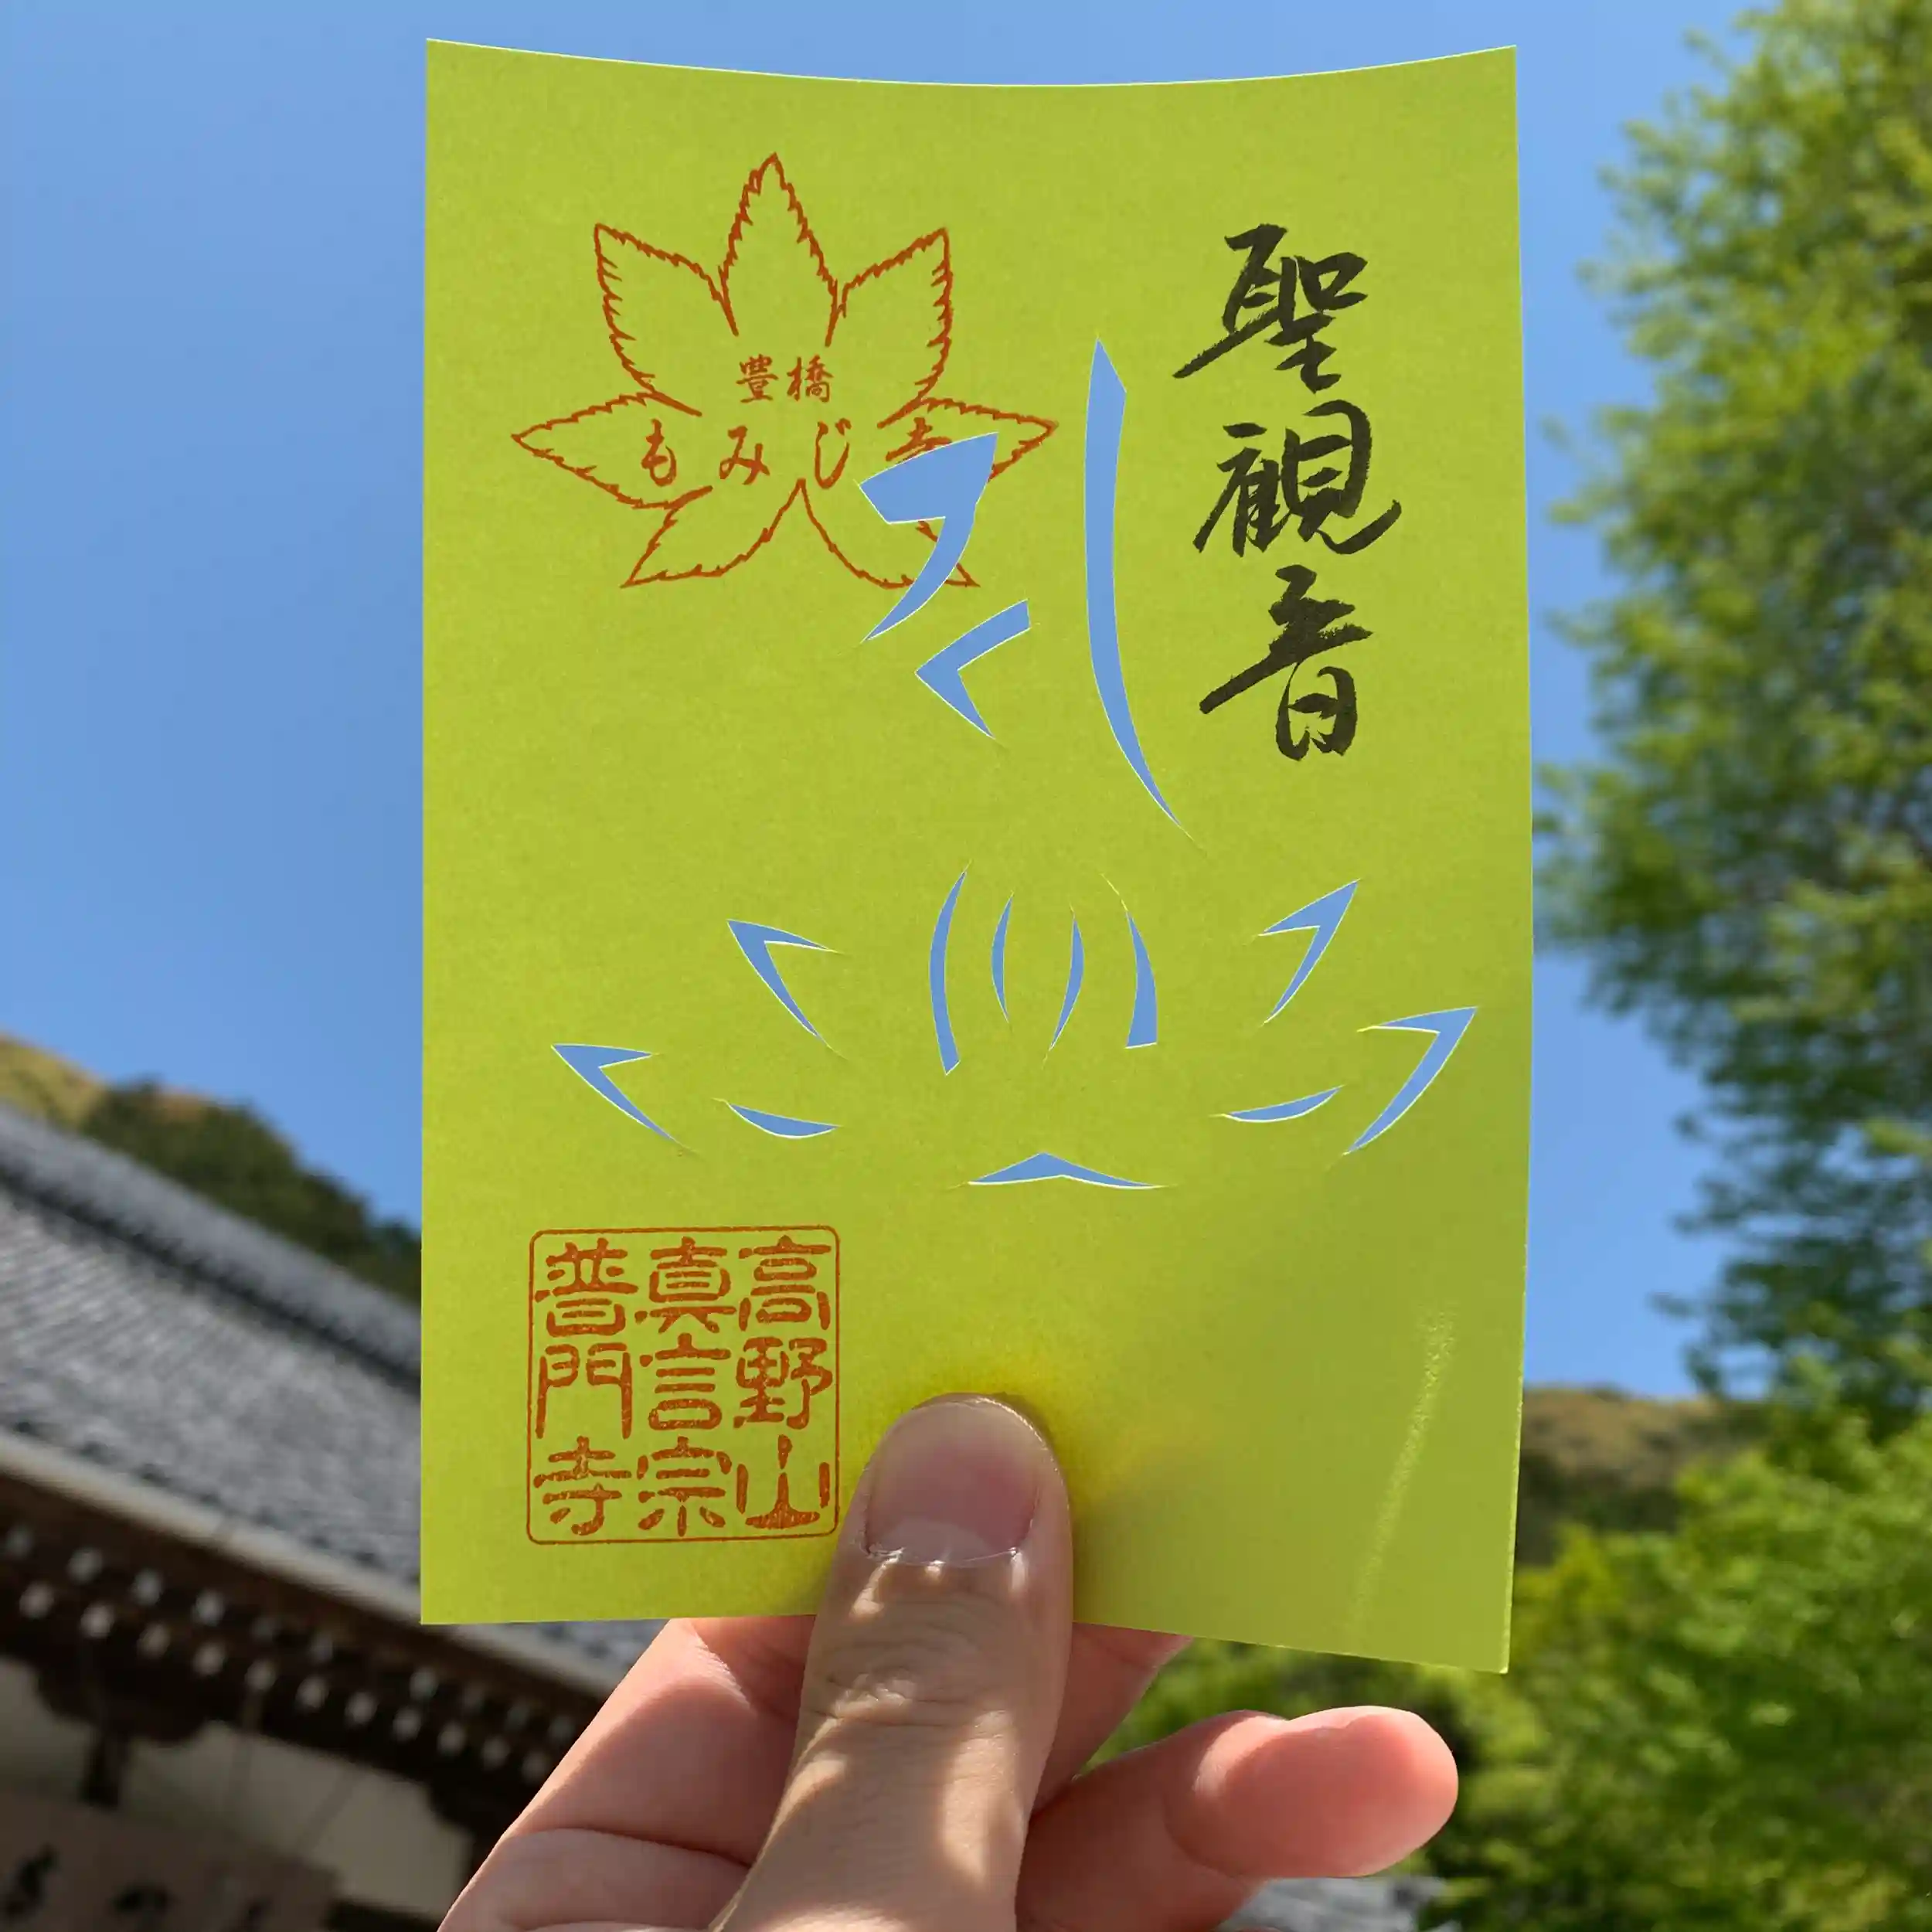 聖観音
豊橋
もみじ寺
高野山
真言宗
普門寺